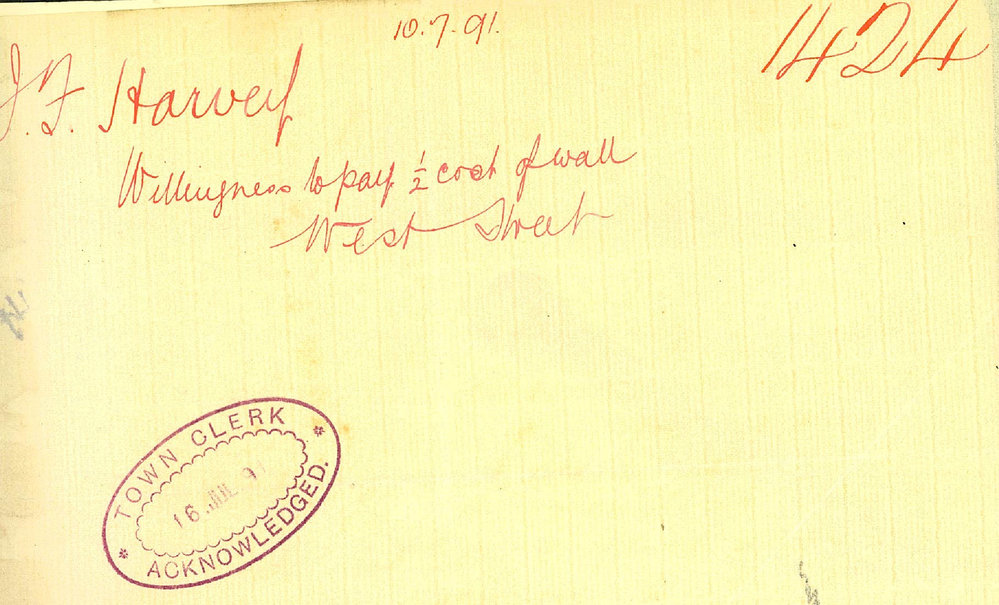 10.7.91.
1424
J. F. Harvey
Willingness to pay ½ cost of wall
West Street
TOWN CLERK
16 JUL 9
ACKNOWLEDGED.